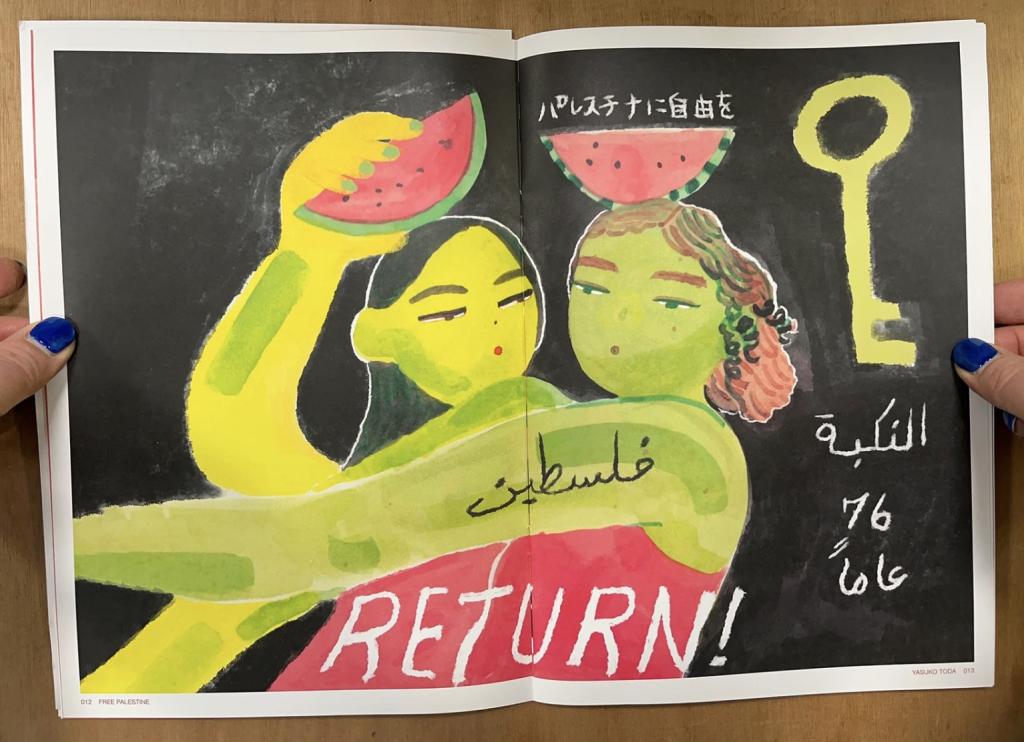 パレスチナに自由を
فلسطين
النكبة
76
عاماً
RETURN!
012 FREE PALESTINE
YASUKO TODA 013